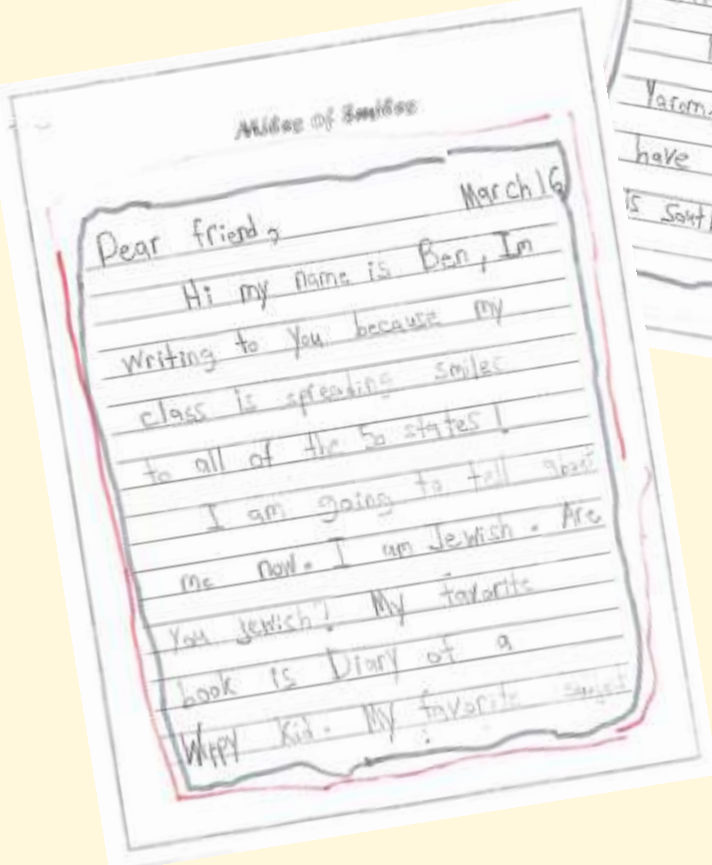 Miles of Smiles
March 16
Dear friend,
Hi my name is Ben, Im
writing to you because my
class is spreading smiles
to all of the 50 states!
I am going to tell about
me now. I am Jewish. Are
you Jewish? My favorite
book is Diary of a
Wippy Kid. My favorite subject
Yarom
have
is sout